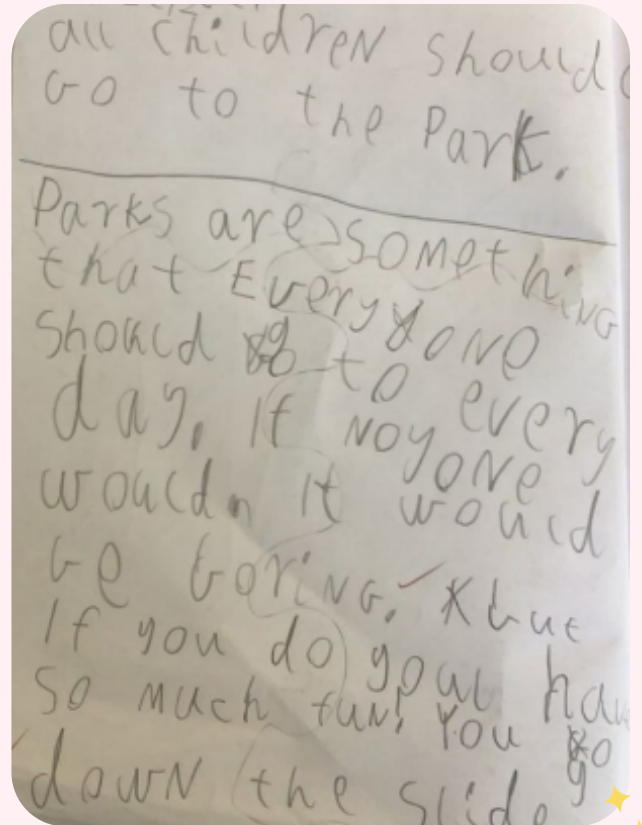 all children should
Go to the Park.
Parks are something
that Everyone
should to every
day. If noyone
would. It would
be boring. but
If you do you hav
so much fun! You go
down the slide